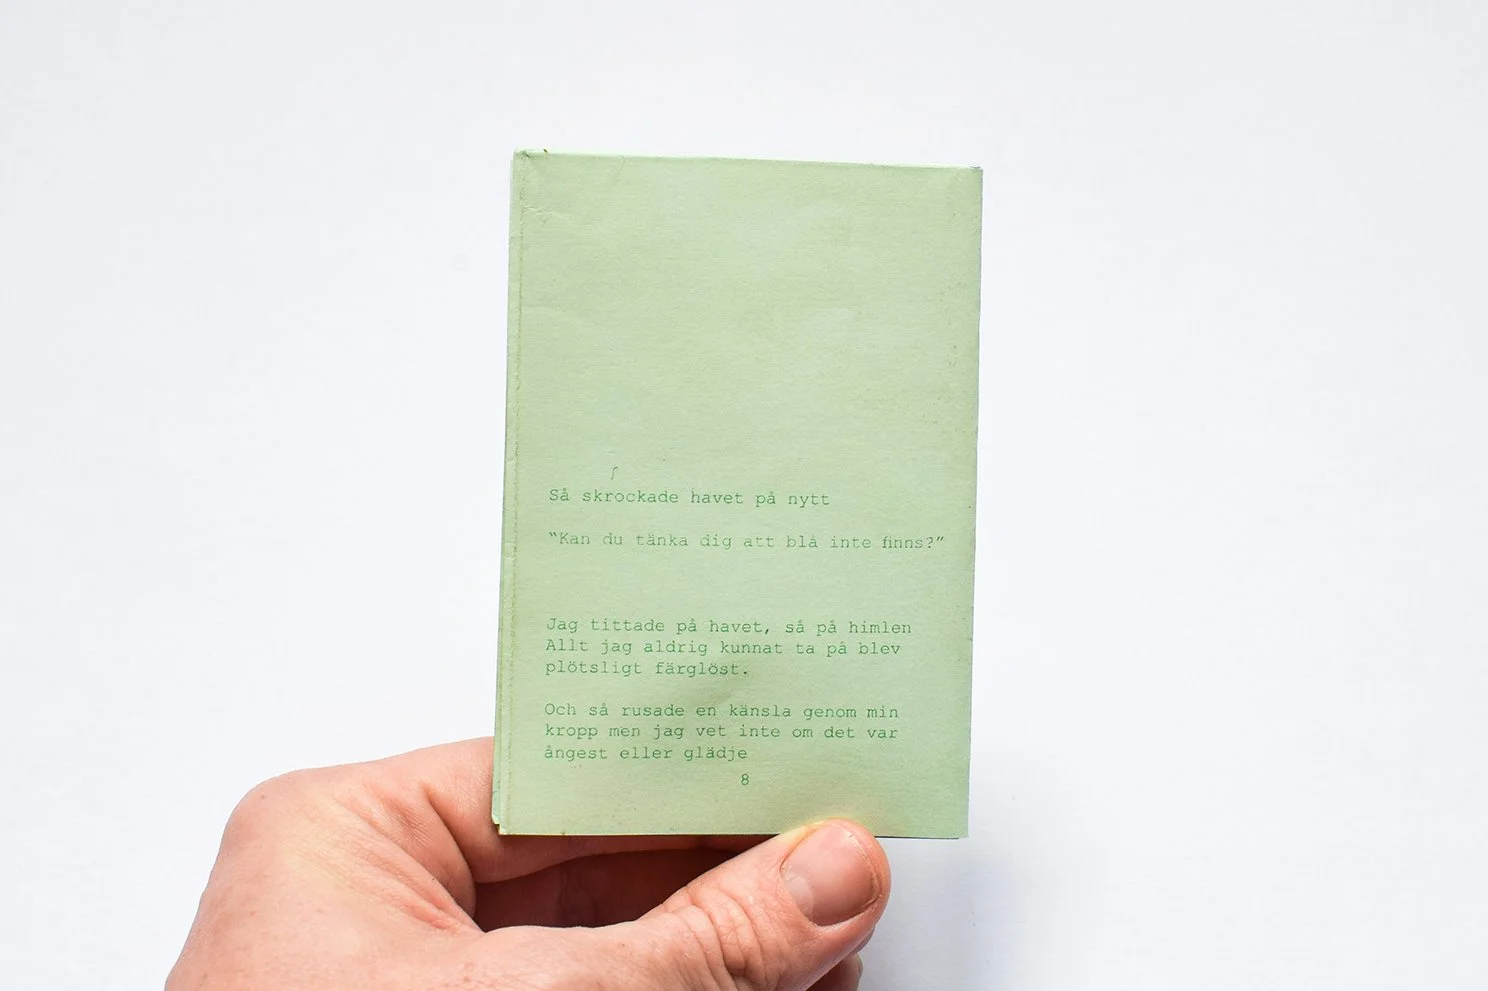 Så skrockade havet på nytt
“Kan du tänka dig att blå inte finns?”
Jag tittade på havet, så på himlen
Allt jag aldrig kunnat ta på blev
plötsligt färglöst.
Och så rusade en känsla genom min
kropp men jag vet inte om det var
ångest eller glädje
8